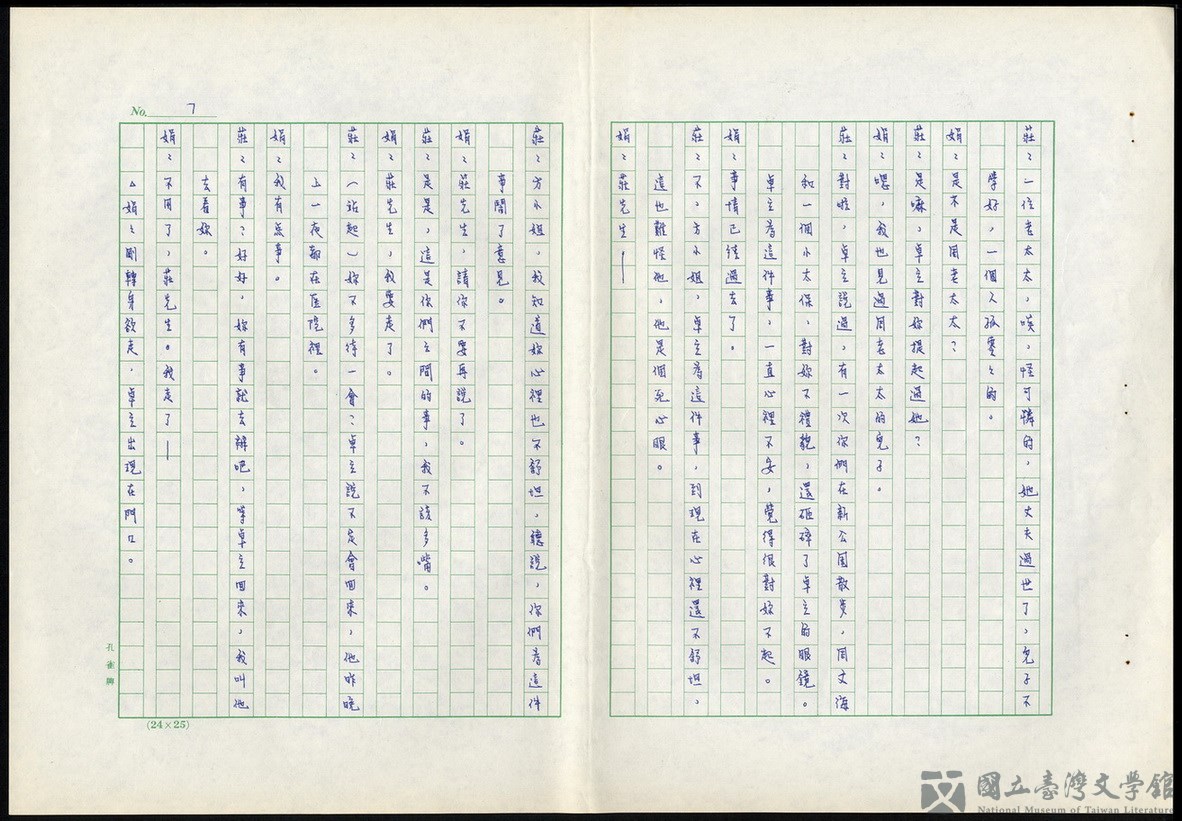 莊：一位老太太，唉，怪可憐的，她丈夫過世了，兒子不
學好，一個人孤零々的。
娟：是不是周老太太？
莊：是嘛，卓立對妳提起過她？
娟：嗯，我也見過周老太太的兒子。
莊：對啦，卓立說過，有一次你們在新公園散步，周文海
和一個小太保，對妳不禮貌，還砸碎了卓立的眼鏡。
卓立為這件事，一直心裡不安，覺得很對妳不起。
娟：事情已經過去了。
莊：不，方小姐，卓立為這件事，到現在心裡還不舒坦，
這也難怪他，他是個死心眼。
娟：莊先生——
No. 7
莊：方小姐，我知道妳心裡也不舒坦，聽說，你們為這件
事鬧了意見。
娟：莊先生，請你不要再說了。
莊：是是，這是你們之間的事，我不該多嘴。
娟：莊先生，我要走了。
莊：（站起）妳不多待一會？卓立說不定會回來，他昨晚
上一夜都在医院裡。
娟：我有点事。
莊：有事？好好，妳有事就去辦吧，等卓立回來，我叫他
去看妳。
娟：不用了，莊先生。我走了——
△娟々剛轉身欲走，卓立出現在門口。
孔雀牌
(24×25)
國立臺灣文學館
National Museum of Taiwan Literature